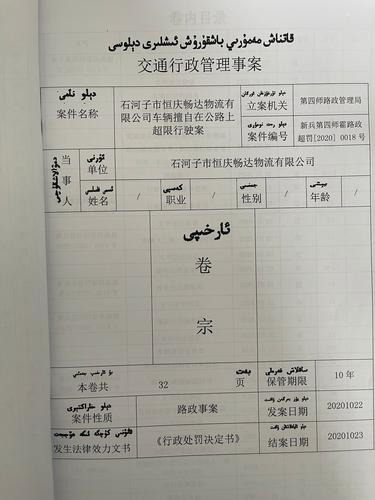 قاتناش مەمۇرىي باشقۇرۇش ئىشلىرى دېلوسى
交通行政管理事案
دېلو نامى
案件名称
石河子市恒庆畅达物流有
限公司车辆擅自在公路上
超限行驶案
立案机关
第四师路政管理局
案件编号
新兵第四师霍路
超罚[2020] 0018 号
当
事
人
ئورنى
单位
石河子市恒庆畅达物流有限公司
姓名
/
كەسپى
职业
/
جىنسى
性别
/
يېشى
年龄
/
ئارخىپى
卷
宗
本卷共
32
بەت
页
ساقلاش مۇددىتى
保管期限
10 年
案件性质
路政事案
发案日期
20201022
发生法律效力文书
《行政处罚决定书》
结案日期
20201023